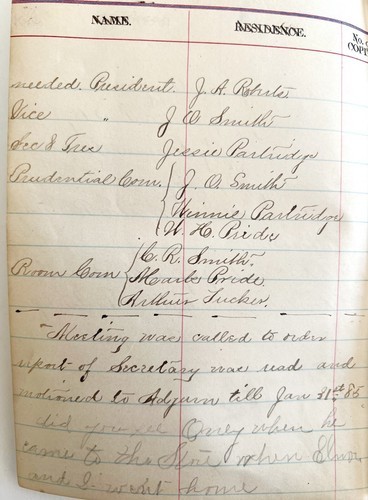 NAME. RESIDENCE. No. COPI
needed. President. J. A. Roberts
Vice " J. O. Smith
Sec & Tres Jessie Partridge
Prudential Com. J. O. Smith
Winnie Partridge
W. H. Pride
C. R. Smith.
Room Com Mark Pride.
Arthur Tucker.
Meeting was called to order
report of Secretary was read and
motioned to Adjurn till Jan 31st 85
did you see Orrey when he
came to the Store when Elmer
and I went home